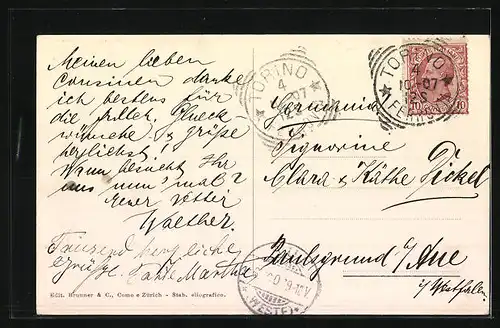 Meinen lieben
Cousinen danke
ich bestens für
die Glück-
wünsche. Es grüßt
herzlichst,
Wann besucht Ihr
uns nun mal?
Euer Vetter
Walther.
Tausend herzliche
Grüße. Tante Martha
Edit. Brunner & C., Como e Zürich - Stab. eliografico.
TORINO
4
07
TORINO
4
10-07
FERROVIA
10 10
Germania
Signorine
Clara & Käthe Pickel
Paulsgrund i/ Aue
i/ Westfalen.
(WESTF)